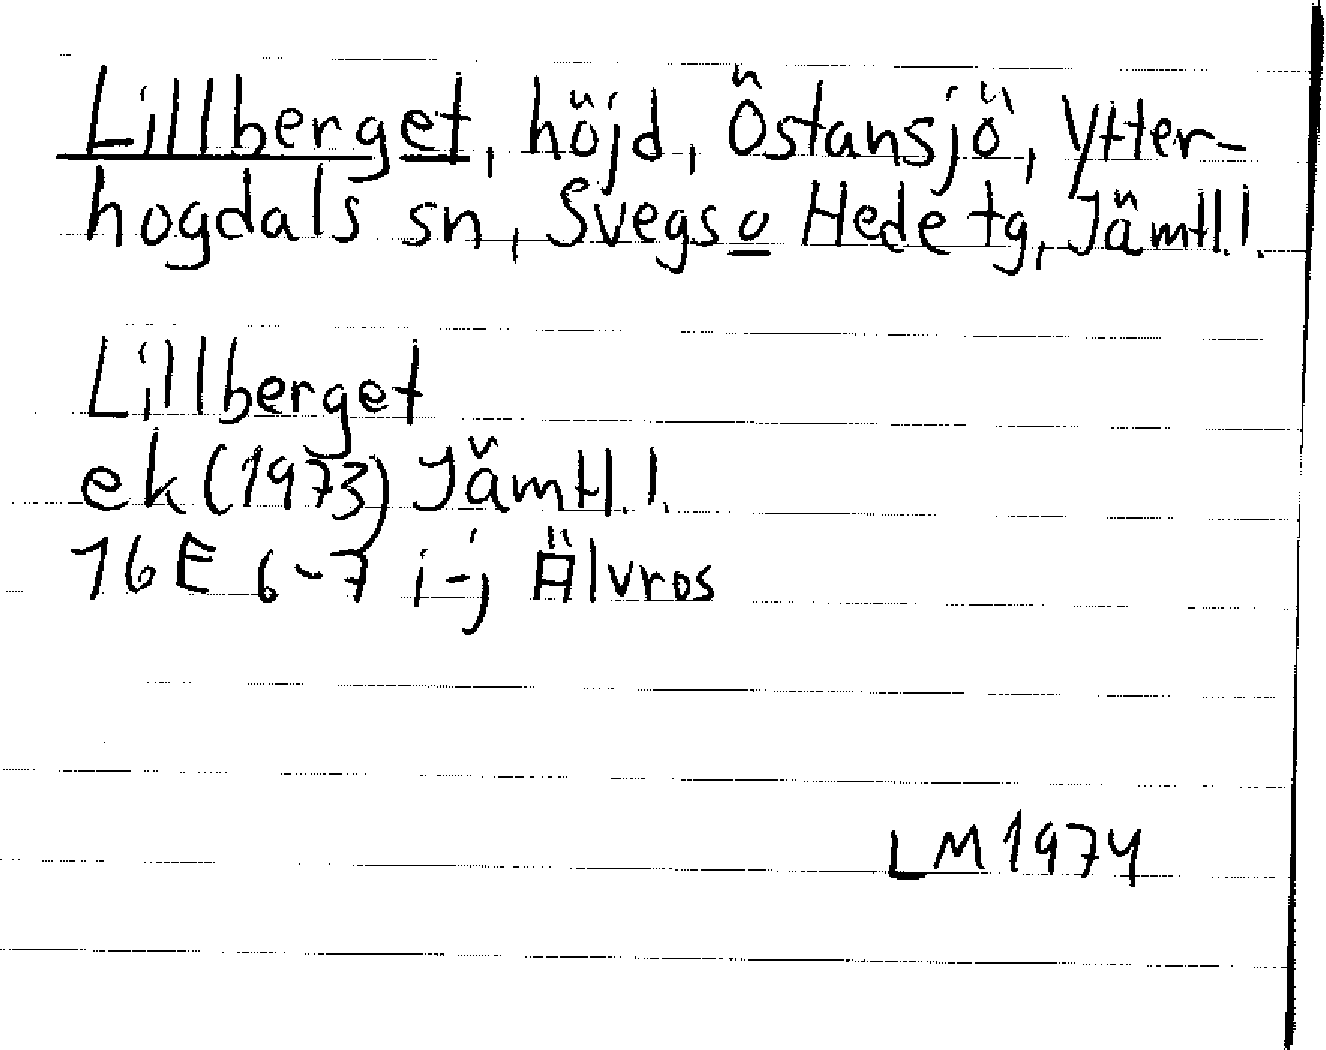 Lillberget, höjd, Östansjö, Ytter-
hogdals sn, Svegs o Hede tg, Jämtl.l.
Lillberget
ek (1973) Jämtl.l.
16E 6-7 i-j Älvros
LM 1974